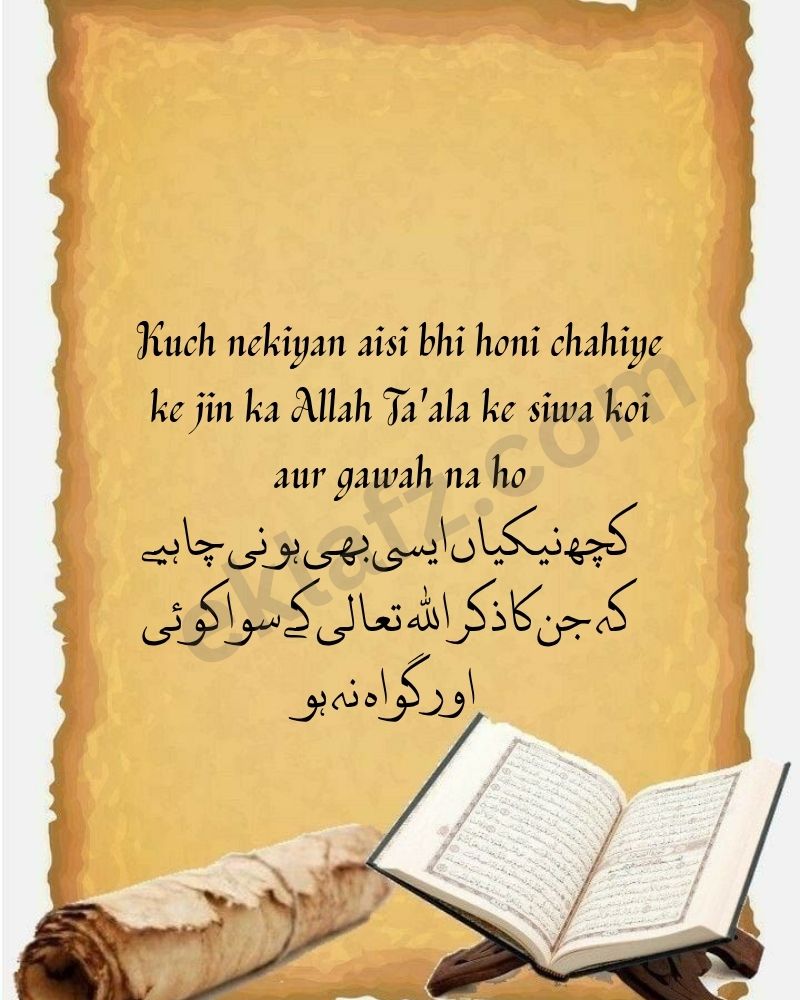 Kuch nekiyan aisi bhi honi chahiye
ke jin ka Allah Ta'ala ke siwa koi
aur gawah na ho
کچھ نیکیاں ایسی بھی ہونی چاہیے
کہ جن کا ذکر اللہ تعالی کے سوا کوئی
اور گواہ نہ ہو
ektafz.com